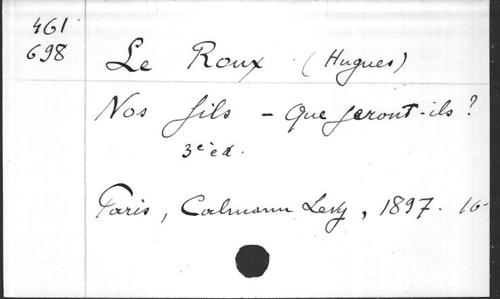 461
698
Le Roux (Hugues)
Nos fils - Que feront-ils ?
3e ed.
Paris, Calmann Levy, 1897. 16-